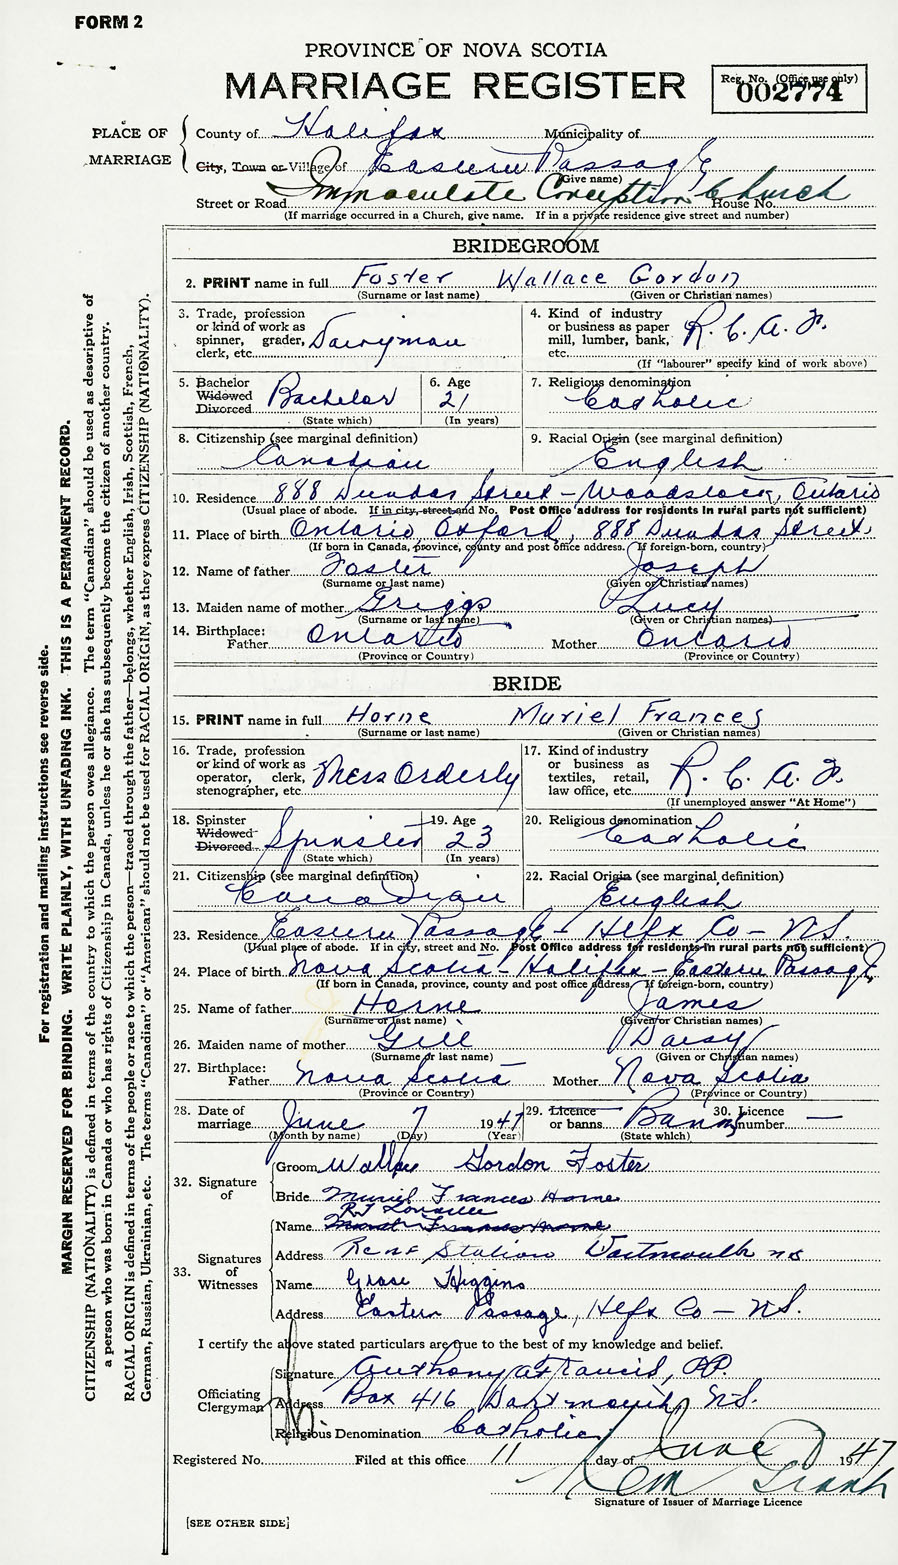 FORM 2
PROVINCE OF NOVA SCOTIA
MARRIAGE REGISTER
Reg. No. (Office use only)
002774
PLACE OF MARRIAGE
County of Halifax Municipality of
City, Town or Village of Eastern Passage
(Give name)
Street or Road Immaculate Conception Church House No.
(If marriage occurred in a Church, give name. If in a private residence give street and number)
BRIDEGROOM
2. PRINT name in full Foster Wallace Gordon
(Surname or last name) (Given or Christian names)
3. Trade, profession or kind of work as spinner, grader, clerk, etc. Dairyman
4. Kind of industry or business as paper mill, lumber, bank, etc. R.C.A.F.
(If "labourer" specify kind of work above)
5. Bachelor Widowed Divorced Bachelor
(State which)
6. Age 21
(In years)
7. Religious denomination Catholic
8. Citizenship (see marginal definition) Canadian
9. Racial Origin (see marginal definition) English
10. Residence 888 Dundas Street - Woodstock, Ontario
(Usual place of abode. If in city, street and No. Post Office address for residents in rural parts not sufficient)
11. Place of birth Ontario, Oxford, 888 Dundas Street
(If born in Canada, province, county and post office address. If foreign-born, country)
12. Name of father Foster Joseph
(Surname or last name) (Given or Christian names)
13. Maiden name of mother Griggs Lucy
(Surname or last name) (Given or Christian names)
14. Birthplace:
Father Ontario Mother Ontario
(Province or Country) (Province or Country)
BRIDE
15. PRINT name in full Horne Muriel Frances
(Surname or last name) (Given or Christian names)
16. Trade, profession or kind of work as operator, clerk, stenographer, etc. Mess Orderly
17. Kind of industry or business as textiles, retail, law office, etc. R.C.A.F.
(If unemployed answer "At Home")
18. Spinster Widowed Divorced Spinster
(State which)
19. Age 23
(In years)
20. Religious denomination Catholic
21. Citizenship (see marginal definition) Canadian
22. Racial Origin (see marginal definition) English
23. Residence Eastern Passage - Hlfx Co - N.S.
(Usual place of abode. If in city, street and No. Post Office address for residents in rural parts not sufficient)
24. Place of birth Nova Scotia - Halifax - Eastern Passage
(If born in Canada, province, county and post office address. If foreign-born, country)
25. Name of father Horne James
(Surname or last name) (Given or Christian names)
26. Maiden name of mother Gill Daisy
(Surname or last name) (Given or Christian names)
27. Birthplace:
Father Nova Scotia Mother Nova Scotia
(Province or Country) (Province or Country)
28. Date of marriage June 7 1947
(Month by name) (Day) (Year)
29. Licence or banns Banns
(State which)
30. Licence number —
32. Signature of
Groom Wallace Gordon Foster
Bride Muriel Frances Horne
33. Signatures of Witnesses
Name Muriel Frances Horne
Address Station Dartmouth NS
Name Grace Higgins
Address Eastern Passage, Hlfx Co - N.S.
I certify the above stated particulars are true to the best of my knowledge and belief.
Officiating Clergyman
Signature Anthony A Francis, PP.
Address Box 416 Dartmouth N.S.
Religious Denomination Catholic
Registered No. Filed at this office 11 day of June 1947
Signature of Issuer of Marriage Licence
[SEE OTHER SIDE]
For registration and mailing instructions see reverse side.
MARGIN RESERVED FOR BINDING. WRITE PLAINLY, WITH UNFADING INK. THIS IS A PERMANENT RECORD.
CITIZENSHIP (NATIONALITY) is defined in terms of the country to which the person owes allegiance. The term "Canadian" should be used as descriptive of
a person who was born in Canada or who has rights of Citizenship in Canada, unless he or she has subsequently become the citizen of another country.
RACIAL ORIGIN is defined in terms of the people or race to which the person—traced through the father—belongs, whether English, Irish, Scottish, French,
German, Russian, Ukrainian, etc. The terms "Canadian" or "American" should not be used for RACIAL ORIGIN, as they express CITIZENSHIP (NATIONALITY).